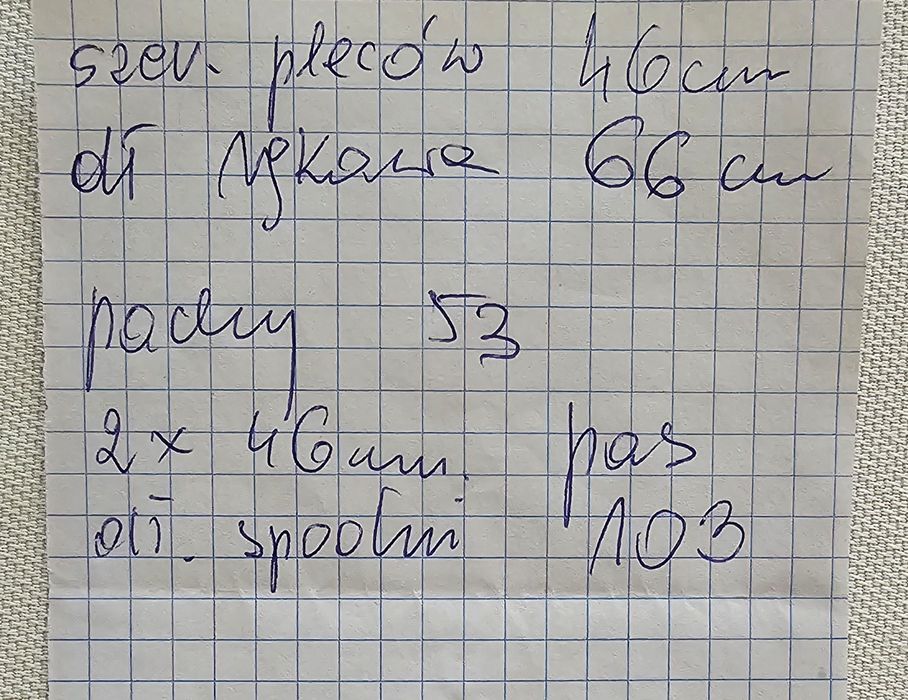 szer. pleców 46cm
dł rękawa 66 cm
pachy 53
2x 46cm. pas
dł. spodni 103